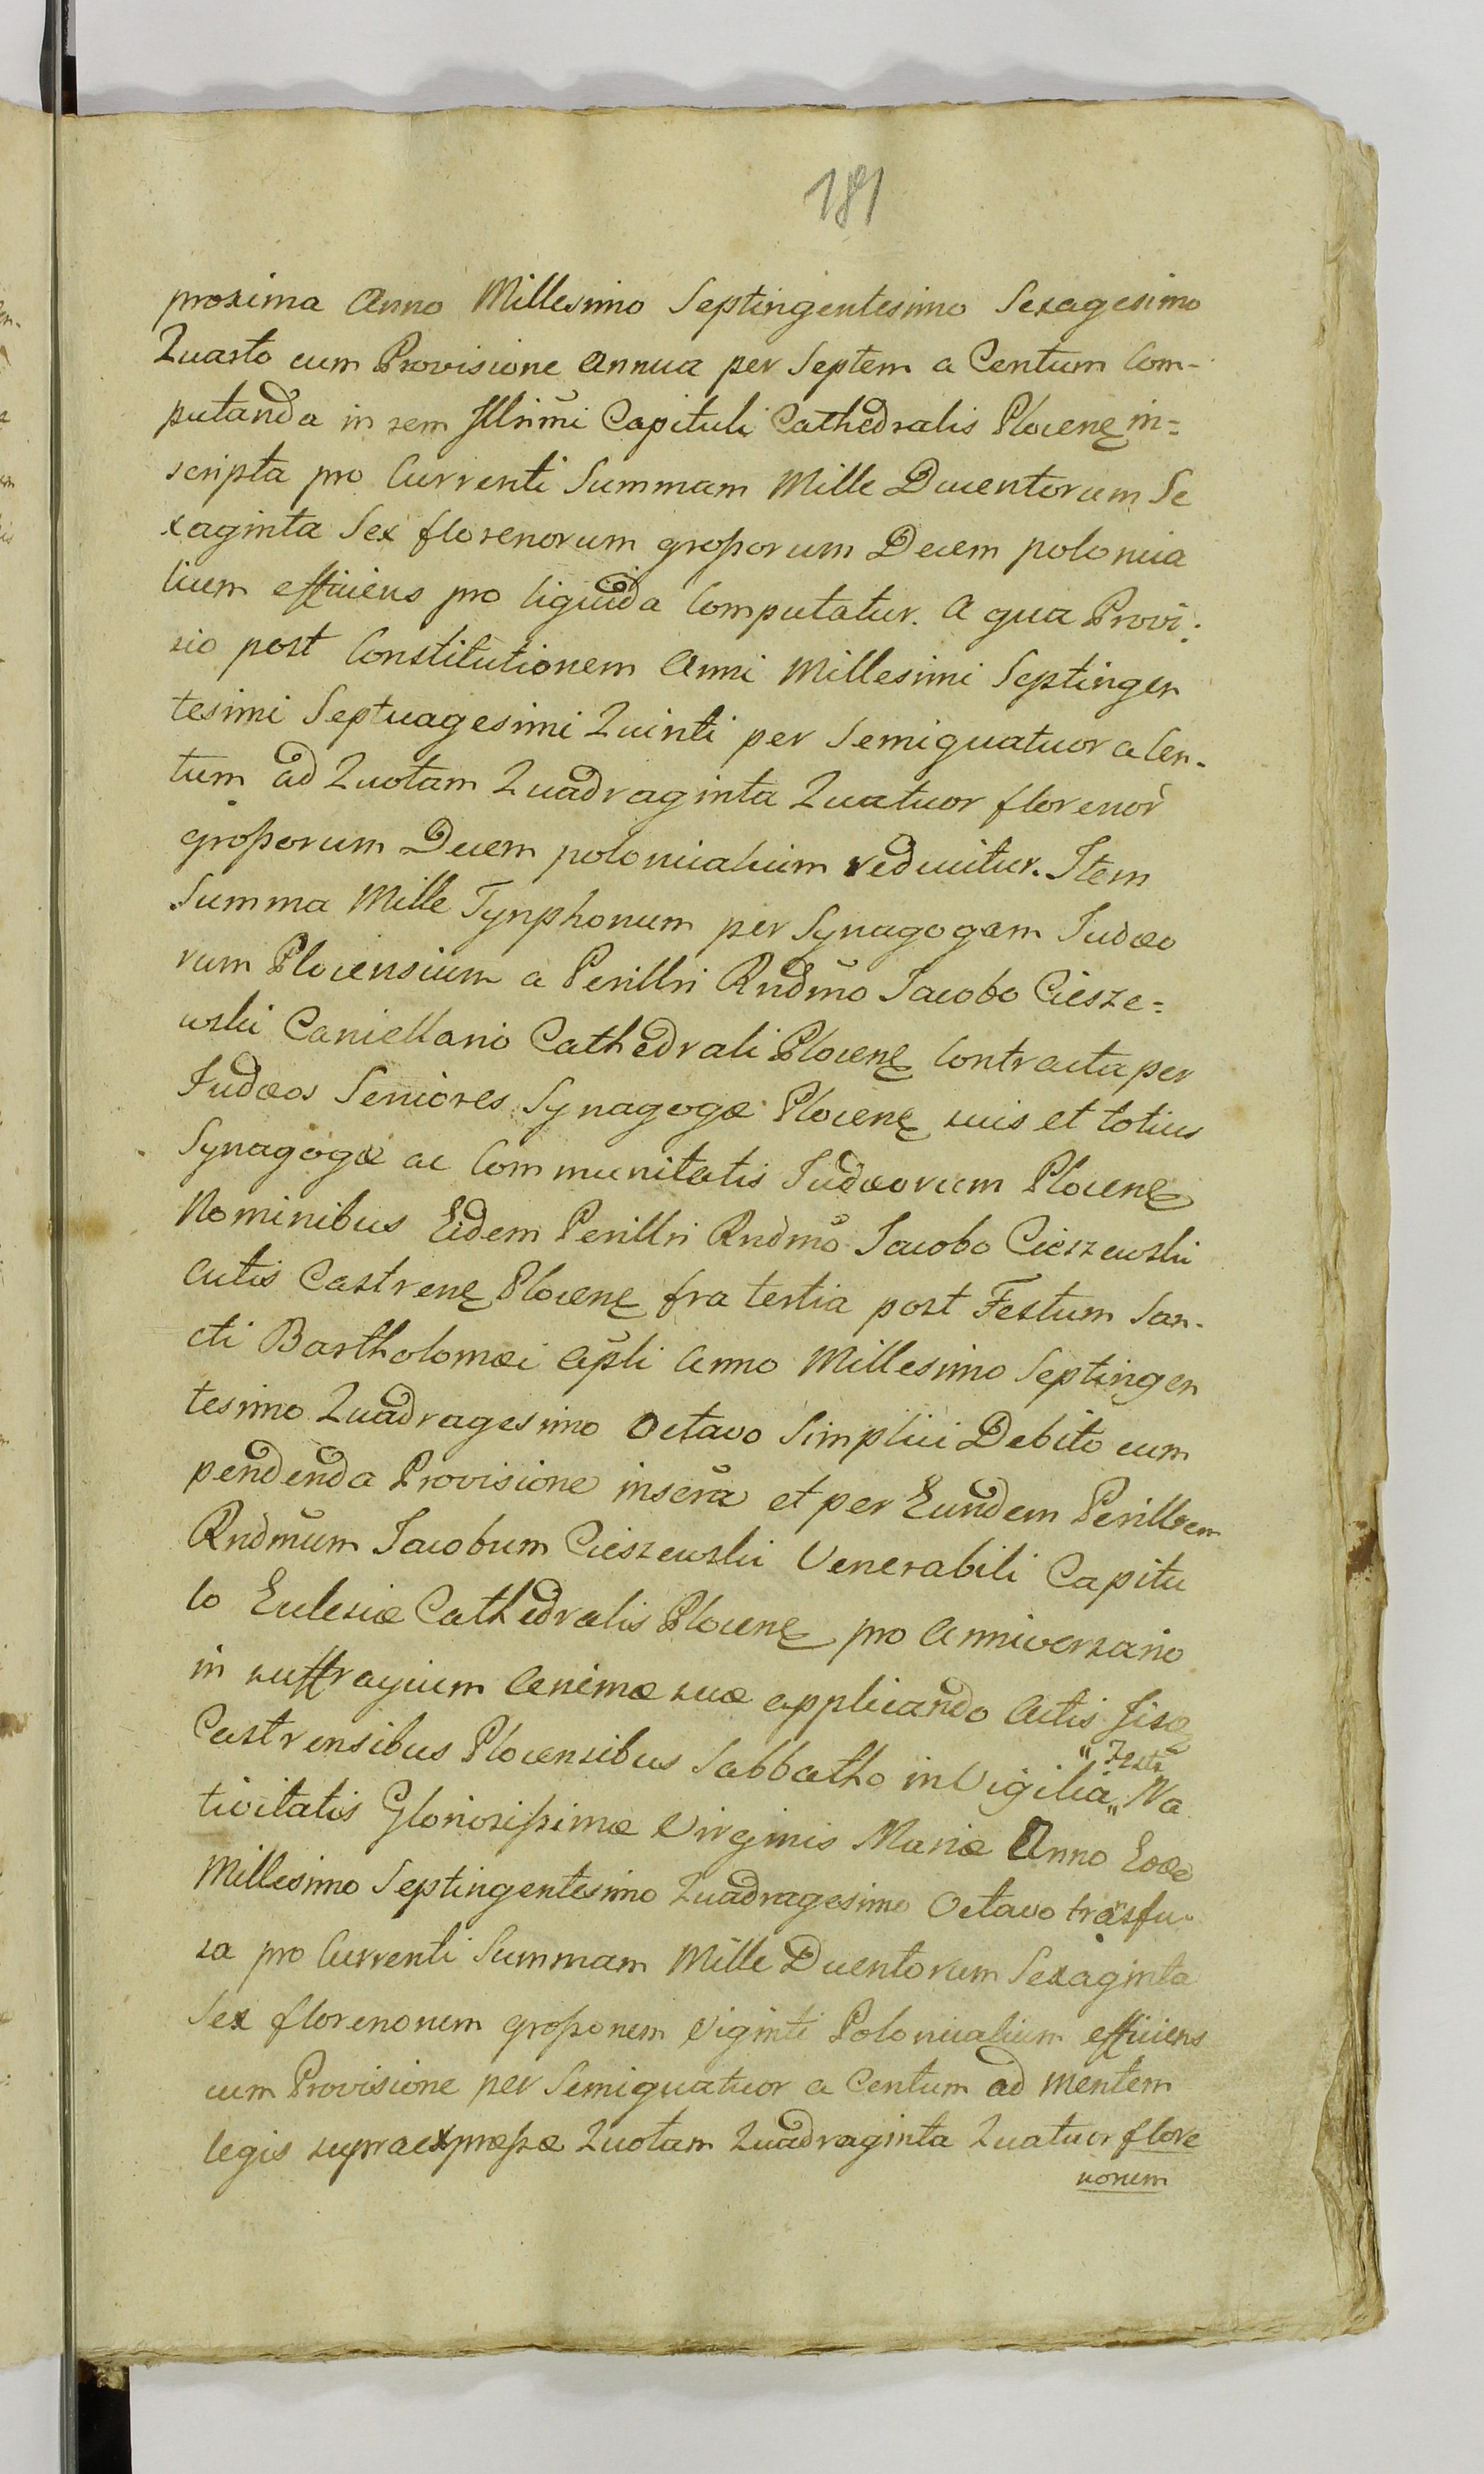 181
proxima Anno Millesimo Septingentesimo Sexagesimo
Quarto cum Provisione Annua per Septem a Centum Com-
putanda in rem Illrimi Capituli Cathedralis Plocenę in=
scripta pro Currenti Summam Mille Ducentorum Se
xaginta Sex florenorum groszorum Decem polonica
lium efficiens pro liquida Computatur. A qua Provi:
sio post Constitutionem Anni Millesimi Septingen
tesimi Septuagesimi Quinti per Semiquatuor a Cen-
tum ad Quotam Quadraginta Quatuor florenor̃
großorum Decem polonicalium reducitur. Item
Summa Mille Tynphonum per Synagogam Judæo
rum Plocensium a Perillri Rndm̃o Jacobo Ciesze=
wski Cancellario Cathedrali Plocenę Contracta per
Judæos Seniores Synagogæ Plocenę suis et totius
Synagogæ ac Communitatis Judæorum Plocenę
Nominibus Eidem Perillri Rndm̃o Jacobo Cieszewski
Actis Castrenę Plocenę fra tertia post Festum San-
cti Bartholomæi Apl̃i Anno Millesimo Septingen
tesimo Quadragesimo Octavo Simplici Debito cum
pendenda Provisione inscr̃a et per Eundem Perillrem
Rndm̃um Jacobum Cieszewski Venerabili Capitu
lo Ecclesiæ Cathedralis Plocenę pro Anniversario
in suffragium Animæ suæ applicando Actis Iisdę
Castrensibus Plocensibus Sabbatho in Vigilia „Festi„ Na
tivitatis Glorioszißimæ Virginis Mariæ Anno Eodẽ
Millesimo Septingentesimo Quadragesimo Octavo trãsfu-
sa pro Currenti Summam Mille Ducentorum Sexaginta
Sex florenorum großorum Viginti Polonicalium efficiens
cum Provisione per Semiquatuor a Centum ad mentem
legis supraexpreßæ Quotam Quadraginta Quatuor flore
norum